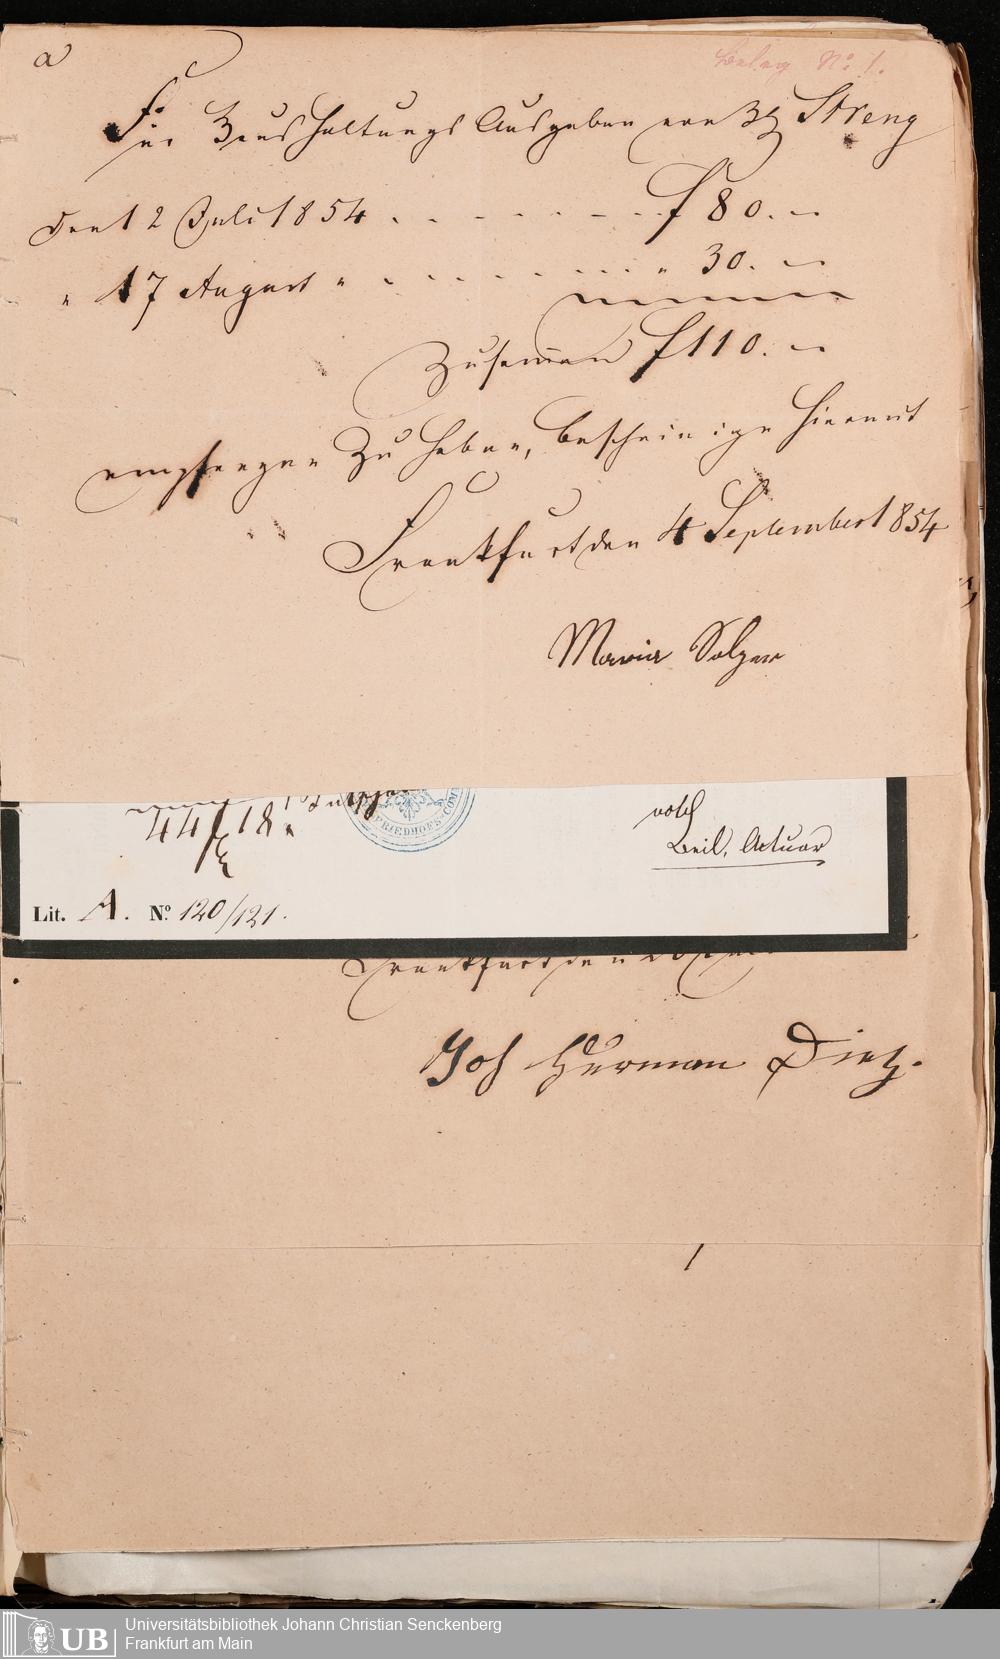 a
Beleg No. 1.
Für Haushaltungs Ausgaben von H Streng
Den 12 Juli 1854 . . - - - - - - f 80. –
" 17 August " - . . . . . . . . " 30. –
Zusamen f 110. –
empfangen zu haben, bescheinige hiermit
Frankfurt den 4 September 1854
Maria Solger
FRIEDHOFS-COM
Beil, Actuar
Lit. A. No. 120/121.
Frankfurt den
Joh Herman Dietz.
UB Universitätsbibliothek Johann Christian Senckenberg
Frankfurt am Main